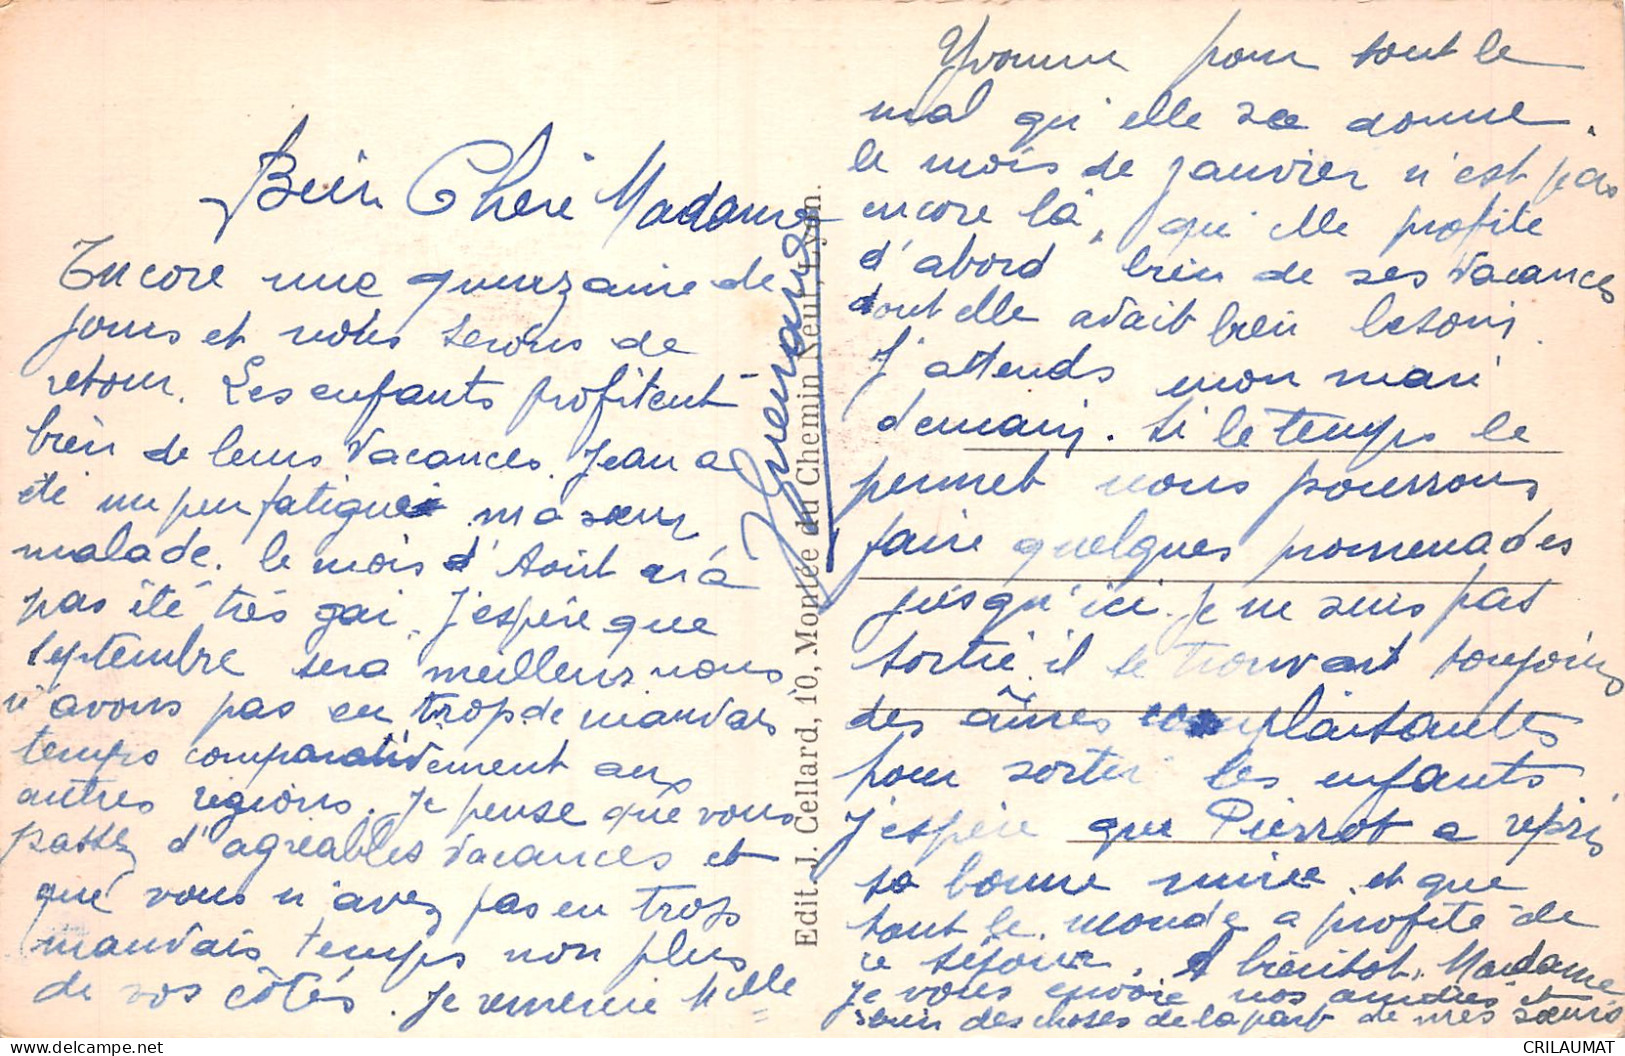 Bien Chère Madame
Encore une quinzaine de
jours et nous serons de
retour. Les enfants profitent
bien de leurs vacances. Jean a
été un peu fatigué ma sœur
malade. le mois d'Août n'a
pas été très gai. J'espère que
septembre sera meilleur nous
n'avons pas eu trop de mauvais
temps comparativement aux
autres régions. Je pense que vous
passez d'agréables vacances et
que vous n'avez pas eu trop
mauvais temps non plus
de vos côtés. Je remercie Melle
Yvonne pour tout le
mal qu'elle se donne.
le mois de janvier n'est pas
encore là, qu'elle profite
d'abord bien de ses vacances
dont elle avait bien besoin.
J'attends mon mari
demain. Si le temps le
permet nous pourrons
faire quelques promenades
jusqu'ici je ne suis pas
sortie il se trouvait toujours
des âmes complaisantes
pour sortir les enfants
J'espère que Pierrot a repris
sa bonne mine et que
tout le monde a profité de
ce séjour. A bientôt, Madame
je vous envoie nos amitiés et
bien des choses de la part de mes sœurs
Edit. J. Cellard, 10, Montée du Chemin Neuf, Lyon.
CRILAUMAT